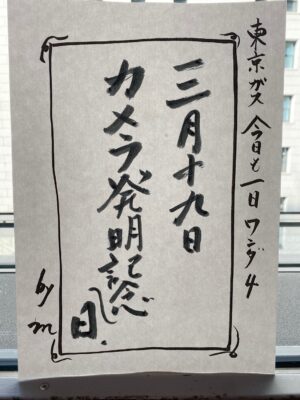 東京ガス 今日も一日 ワンダ4
三月十九日
カメラ発明記念日.
by m